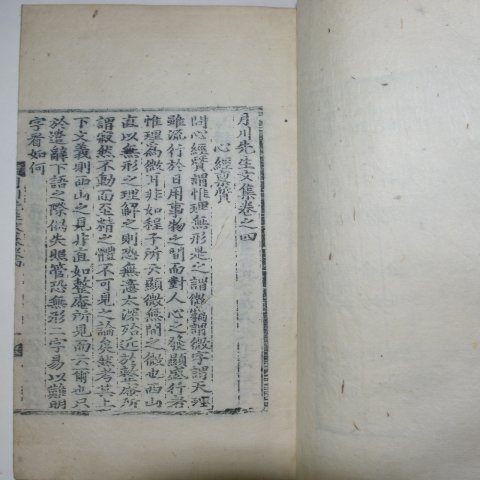 月川先生文集卷之四
心經稟質
問心經贊謂惟理無形是之謂微竊謂微字謂天理
雖流行於日用事物之間而對人心之發顯盛行者
惟理爲微耳非如程子所云顯微無間之微也西山
直以無形之理解之則恐無意太深殆近於整庵所
謂寂然不動而至精之體不可見之論矣然考其上
下文義則西山之見非直如整庵所見而云爾也只
於遣辭下語之際偶失照管恐無形二字易以難明
字看如何